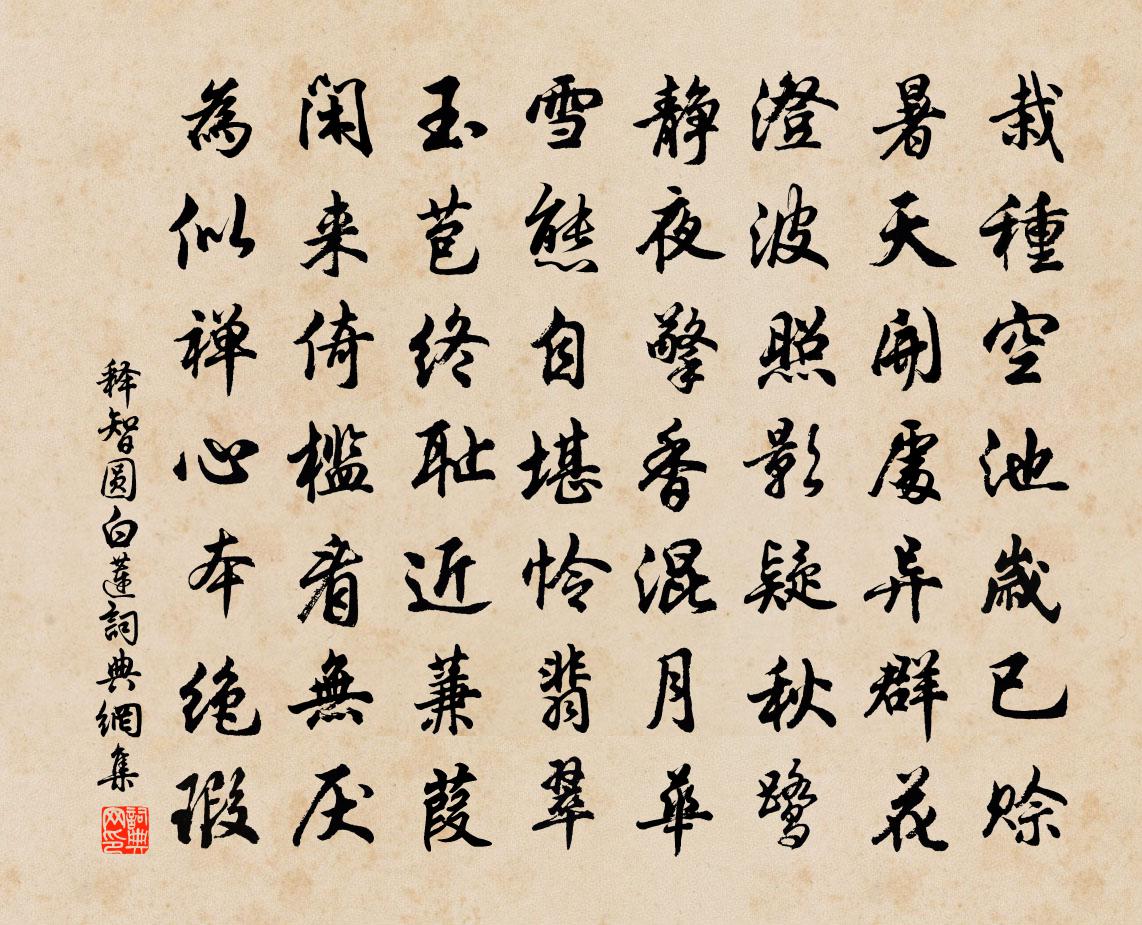 栽種空池歲已賒
暑天開處异群花
澄波照影疑秋鷺
静夜擎香混月華
雪態自堪怜翡翠
玉苞終耻近蒹葭
閑来倚檻看無厌
為似禅心本絶瑕
释智圆白蓮詞典網集
詞典网印